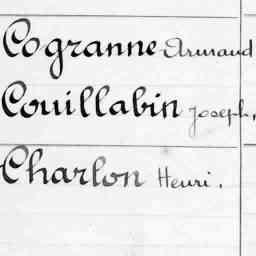 Cogranne Armand
Couillabin Joseph,
Charlon Henri.